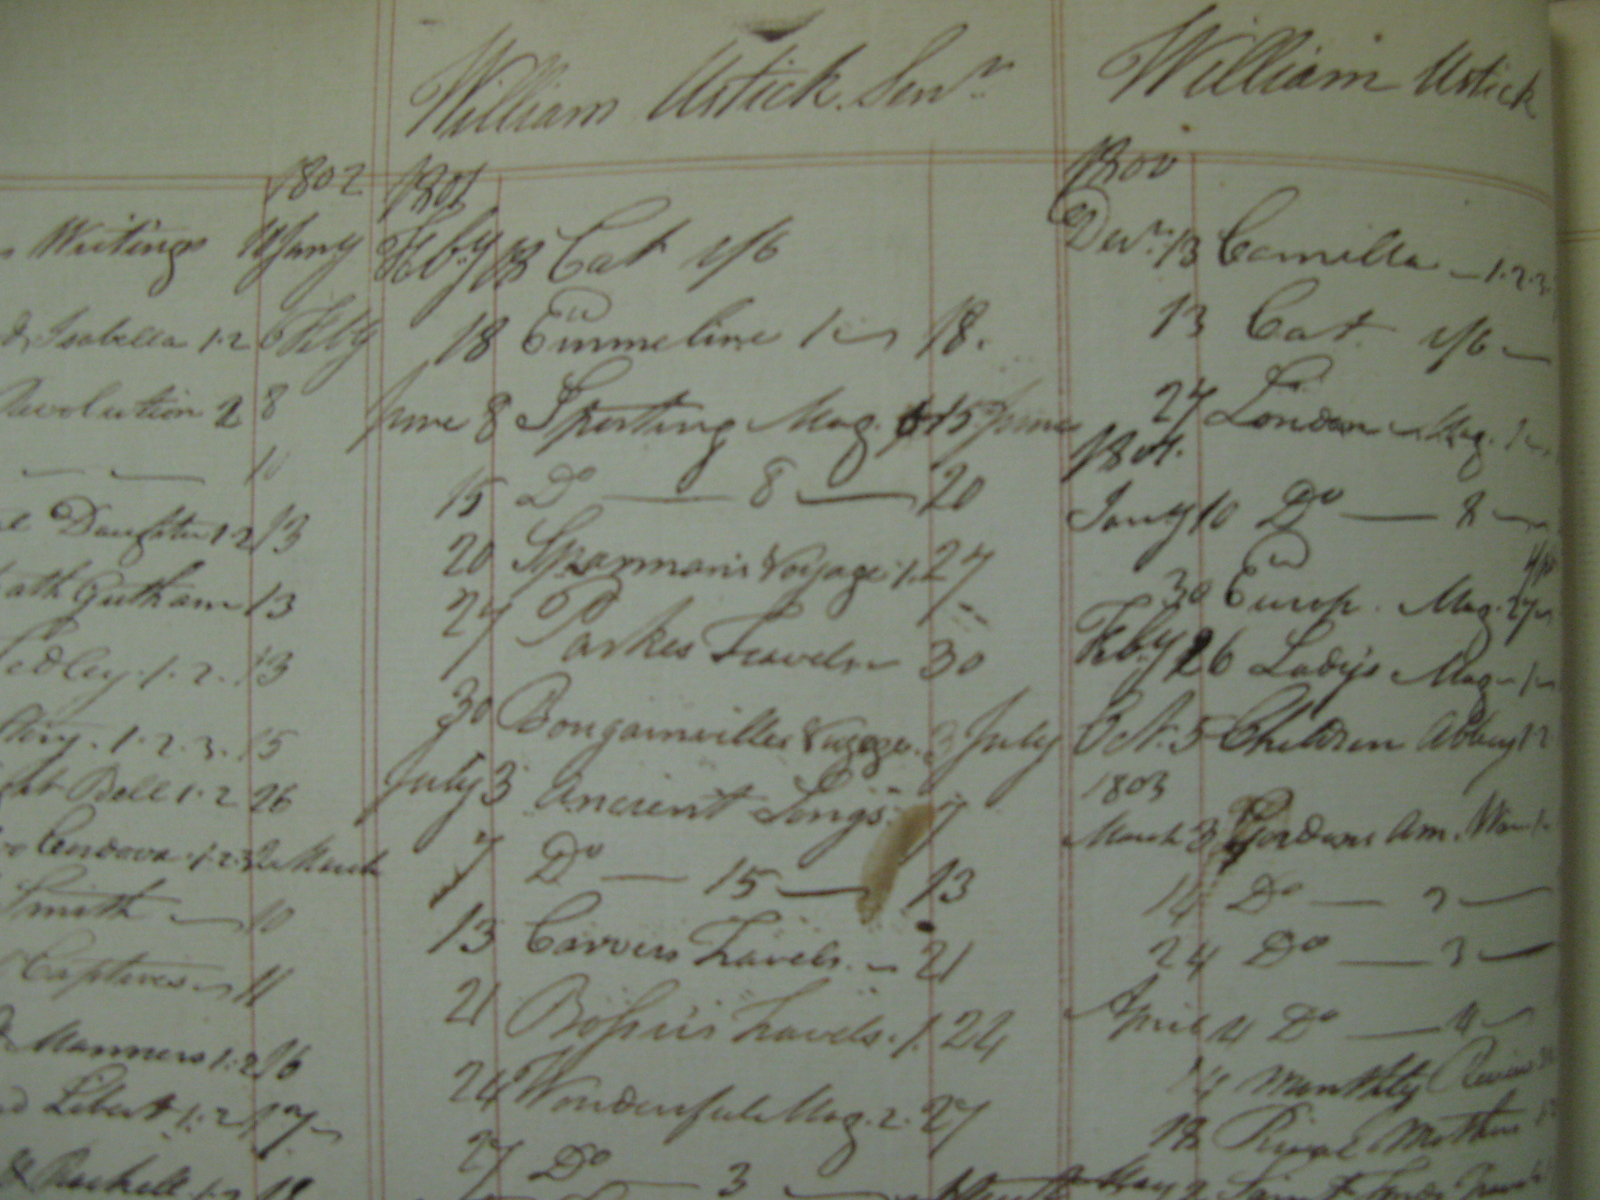 William Ustick Senr.
William Ustick
1802
Writings
& Isabella 1.2 6 Feby
Revolution 2 8
10
Daughter 1.2 13
13
1.2. 13
1.2.3. 15
Bell 1.2 26
Cordova 1.2 March
Smith 10
Captives 11
& Manners 1.2 16
1.2 17
& Rachell 1.2 18
1801
Feby 18 Cat 1/6
18 Emmeline 1 18.
June 8 Sporting Mag. 15 June
15 Do 8 20
20 Sparmans Voyage 1. 27
27 Parkes Travels 30
30 Bougainvilles Voyage. 3 July
July 3 Ancient Songs 7
7 Do 15 13
13 Carvers Travels. 21
21 Bossu's Travels. 1. 24
24 Wonderful Mag. 2. 27
27 Do 3
1800
Decr. 13 Camilla 1.2.3
13 Cat. 1/6
24 London Mag. 1
1801.
Jany 10 Do 8
30 Europ. Mag. 27
Feby 26 Ladys Mag 1
Oct. 5 Children Abbey 1.2
1803
March 3 Gordons Am. War 1
14 Do 2
24 Do 3
April 4 Do 4
14 Monthly Review
18 Rival Mothers
May